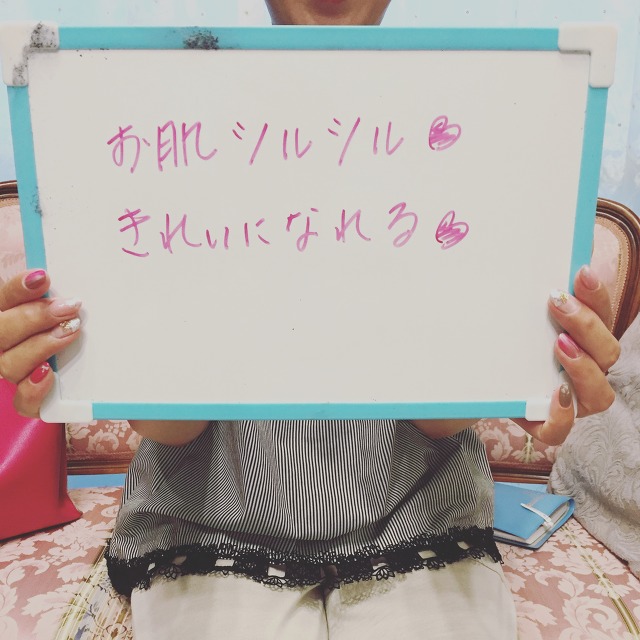 お肌シルシル♥
きれいになれる♥